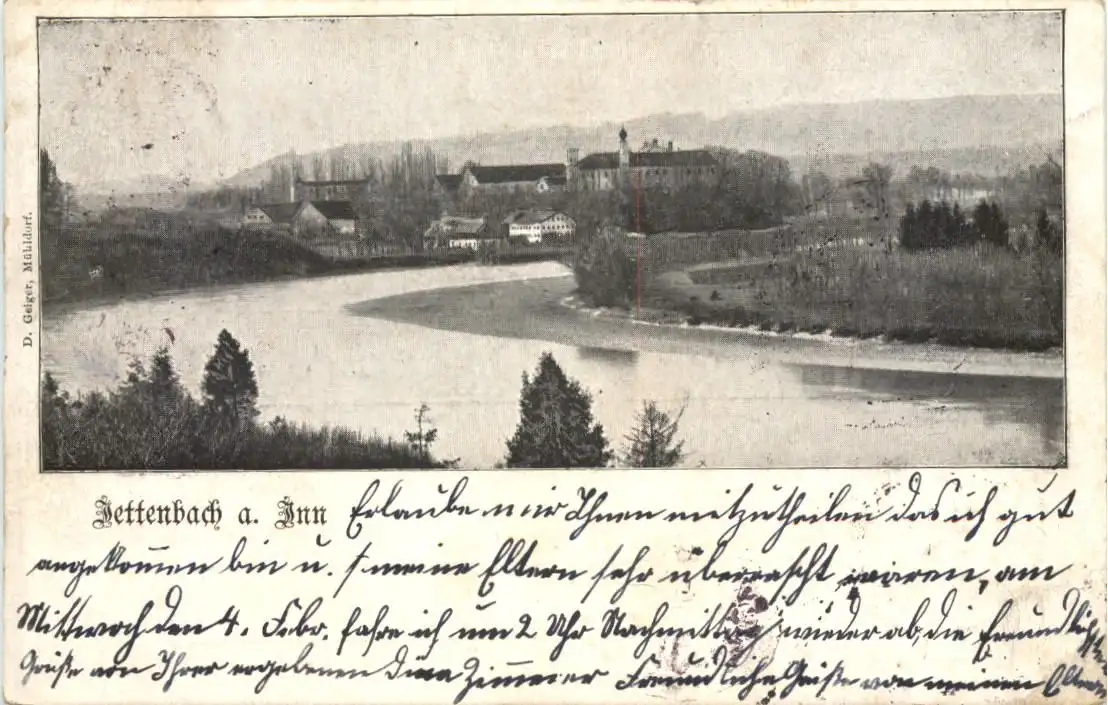 D. Geiger, Mühldorf.
Jettenbach a. Inn Erlaube mir Ihnen mitzutheilen das ich gut
angekommen bin u. meine Eltern sehr überrascht waren, am
Mittwoch den 4. Febr. fahre ich um 2 Uhr Nachmittag wieder ab, die Freundlichsten
Grüße von Ihrer ergebenen Zimmerer Freundliche Grüße von meinen Eltern